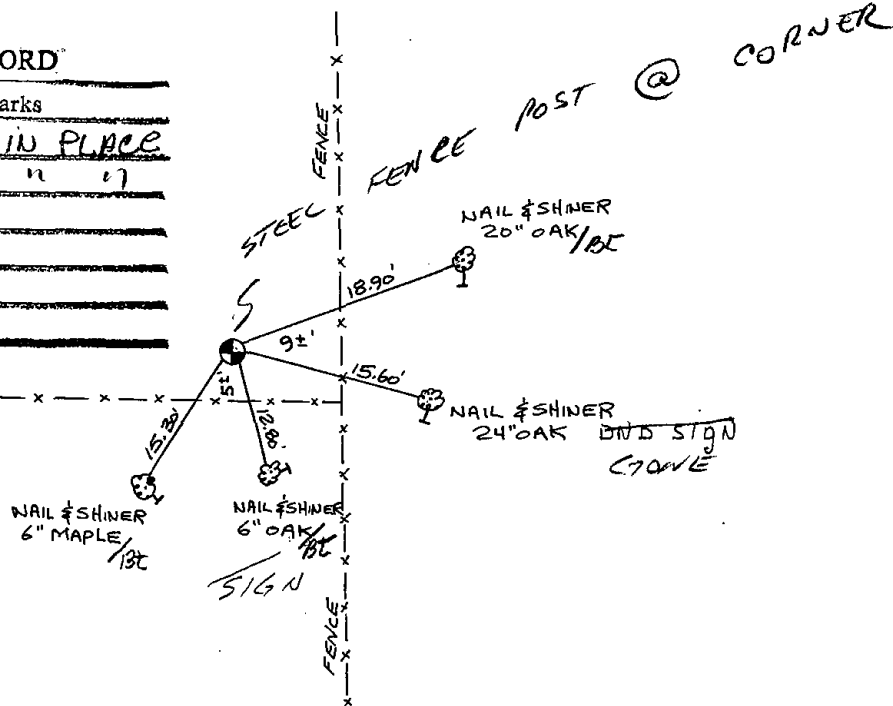 ORD
arks
IN PLACE
" "
FENCE
STEEL FENCE POST @ CORNER
NAIL & SHINER
20" OAK/BT
18.90'
9±'
15.60'
5±'
NAIL & SHINER
24" OAK BND SIGN
GONE
15.30'
12.80'
NAIL & SHINER
6" MAPLE/BT
NAIL & SHINER
6" OAK/BT
SIGN
FENCE